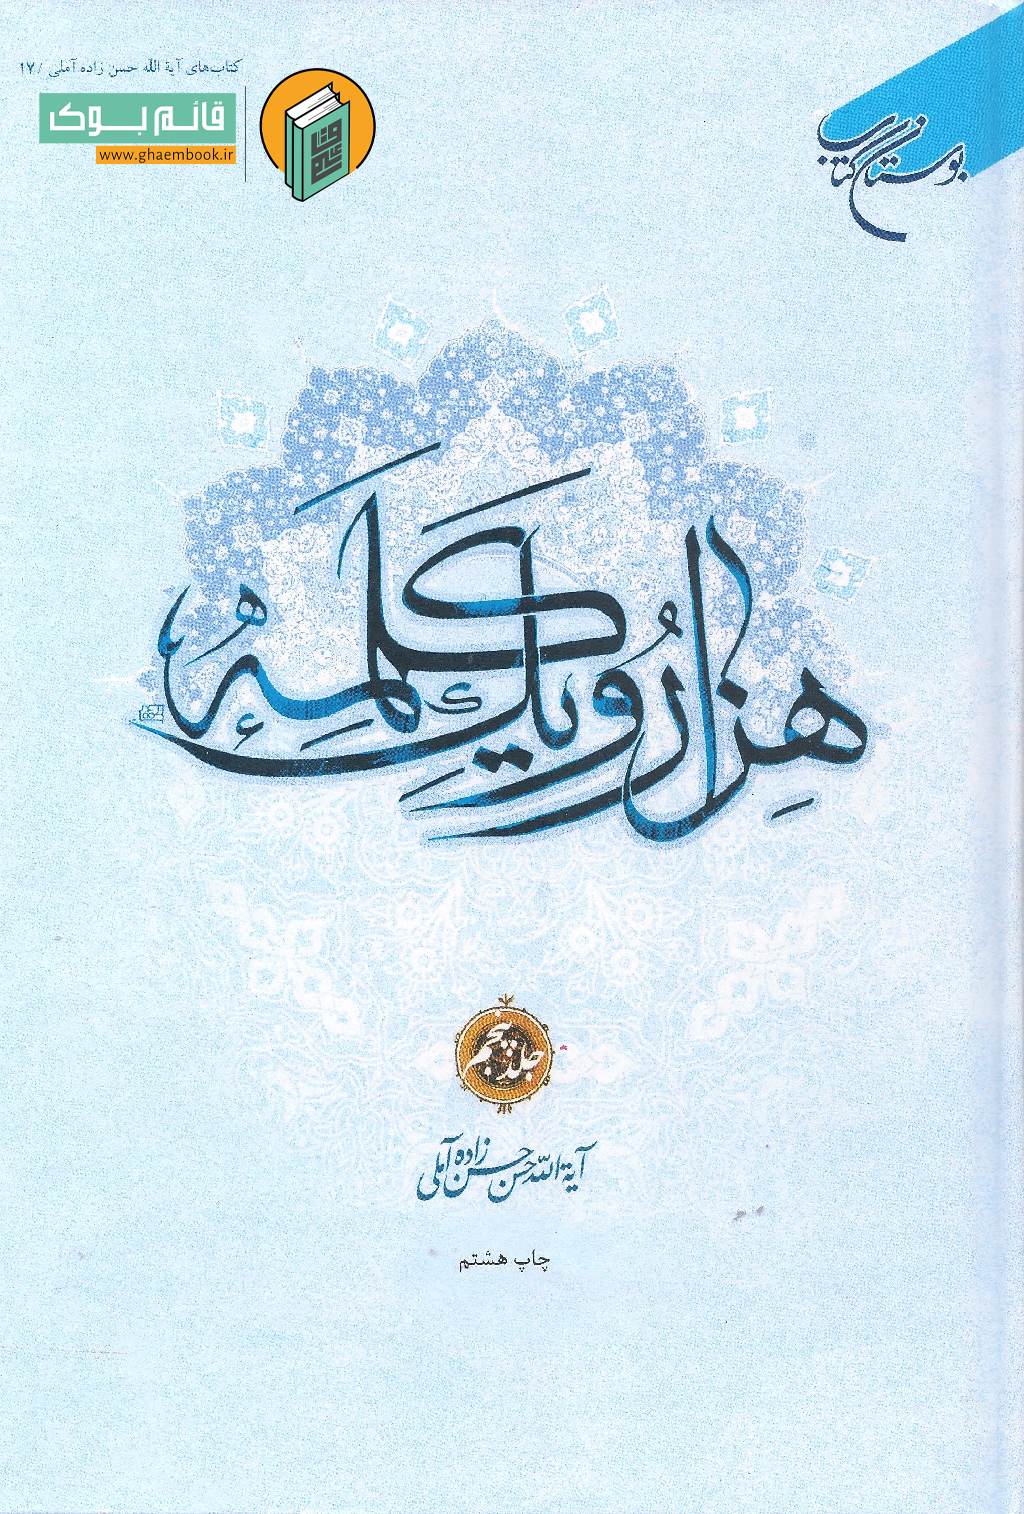 کتاب‌های آیة الله حسن زاده آملی / ۱۷
قائم بوک
www.ghaembook.ir
بوستان کتاب
هزار و یک کلمه
جلد پنجم
آیة اللّه حسن حسن زاده آملی
چاپ هشتم